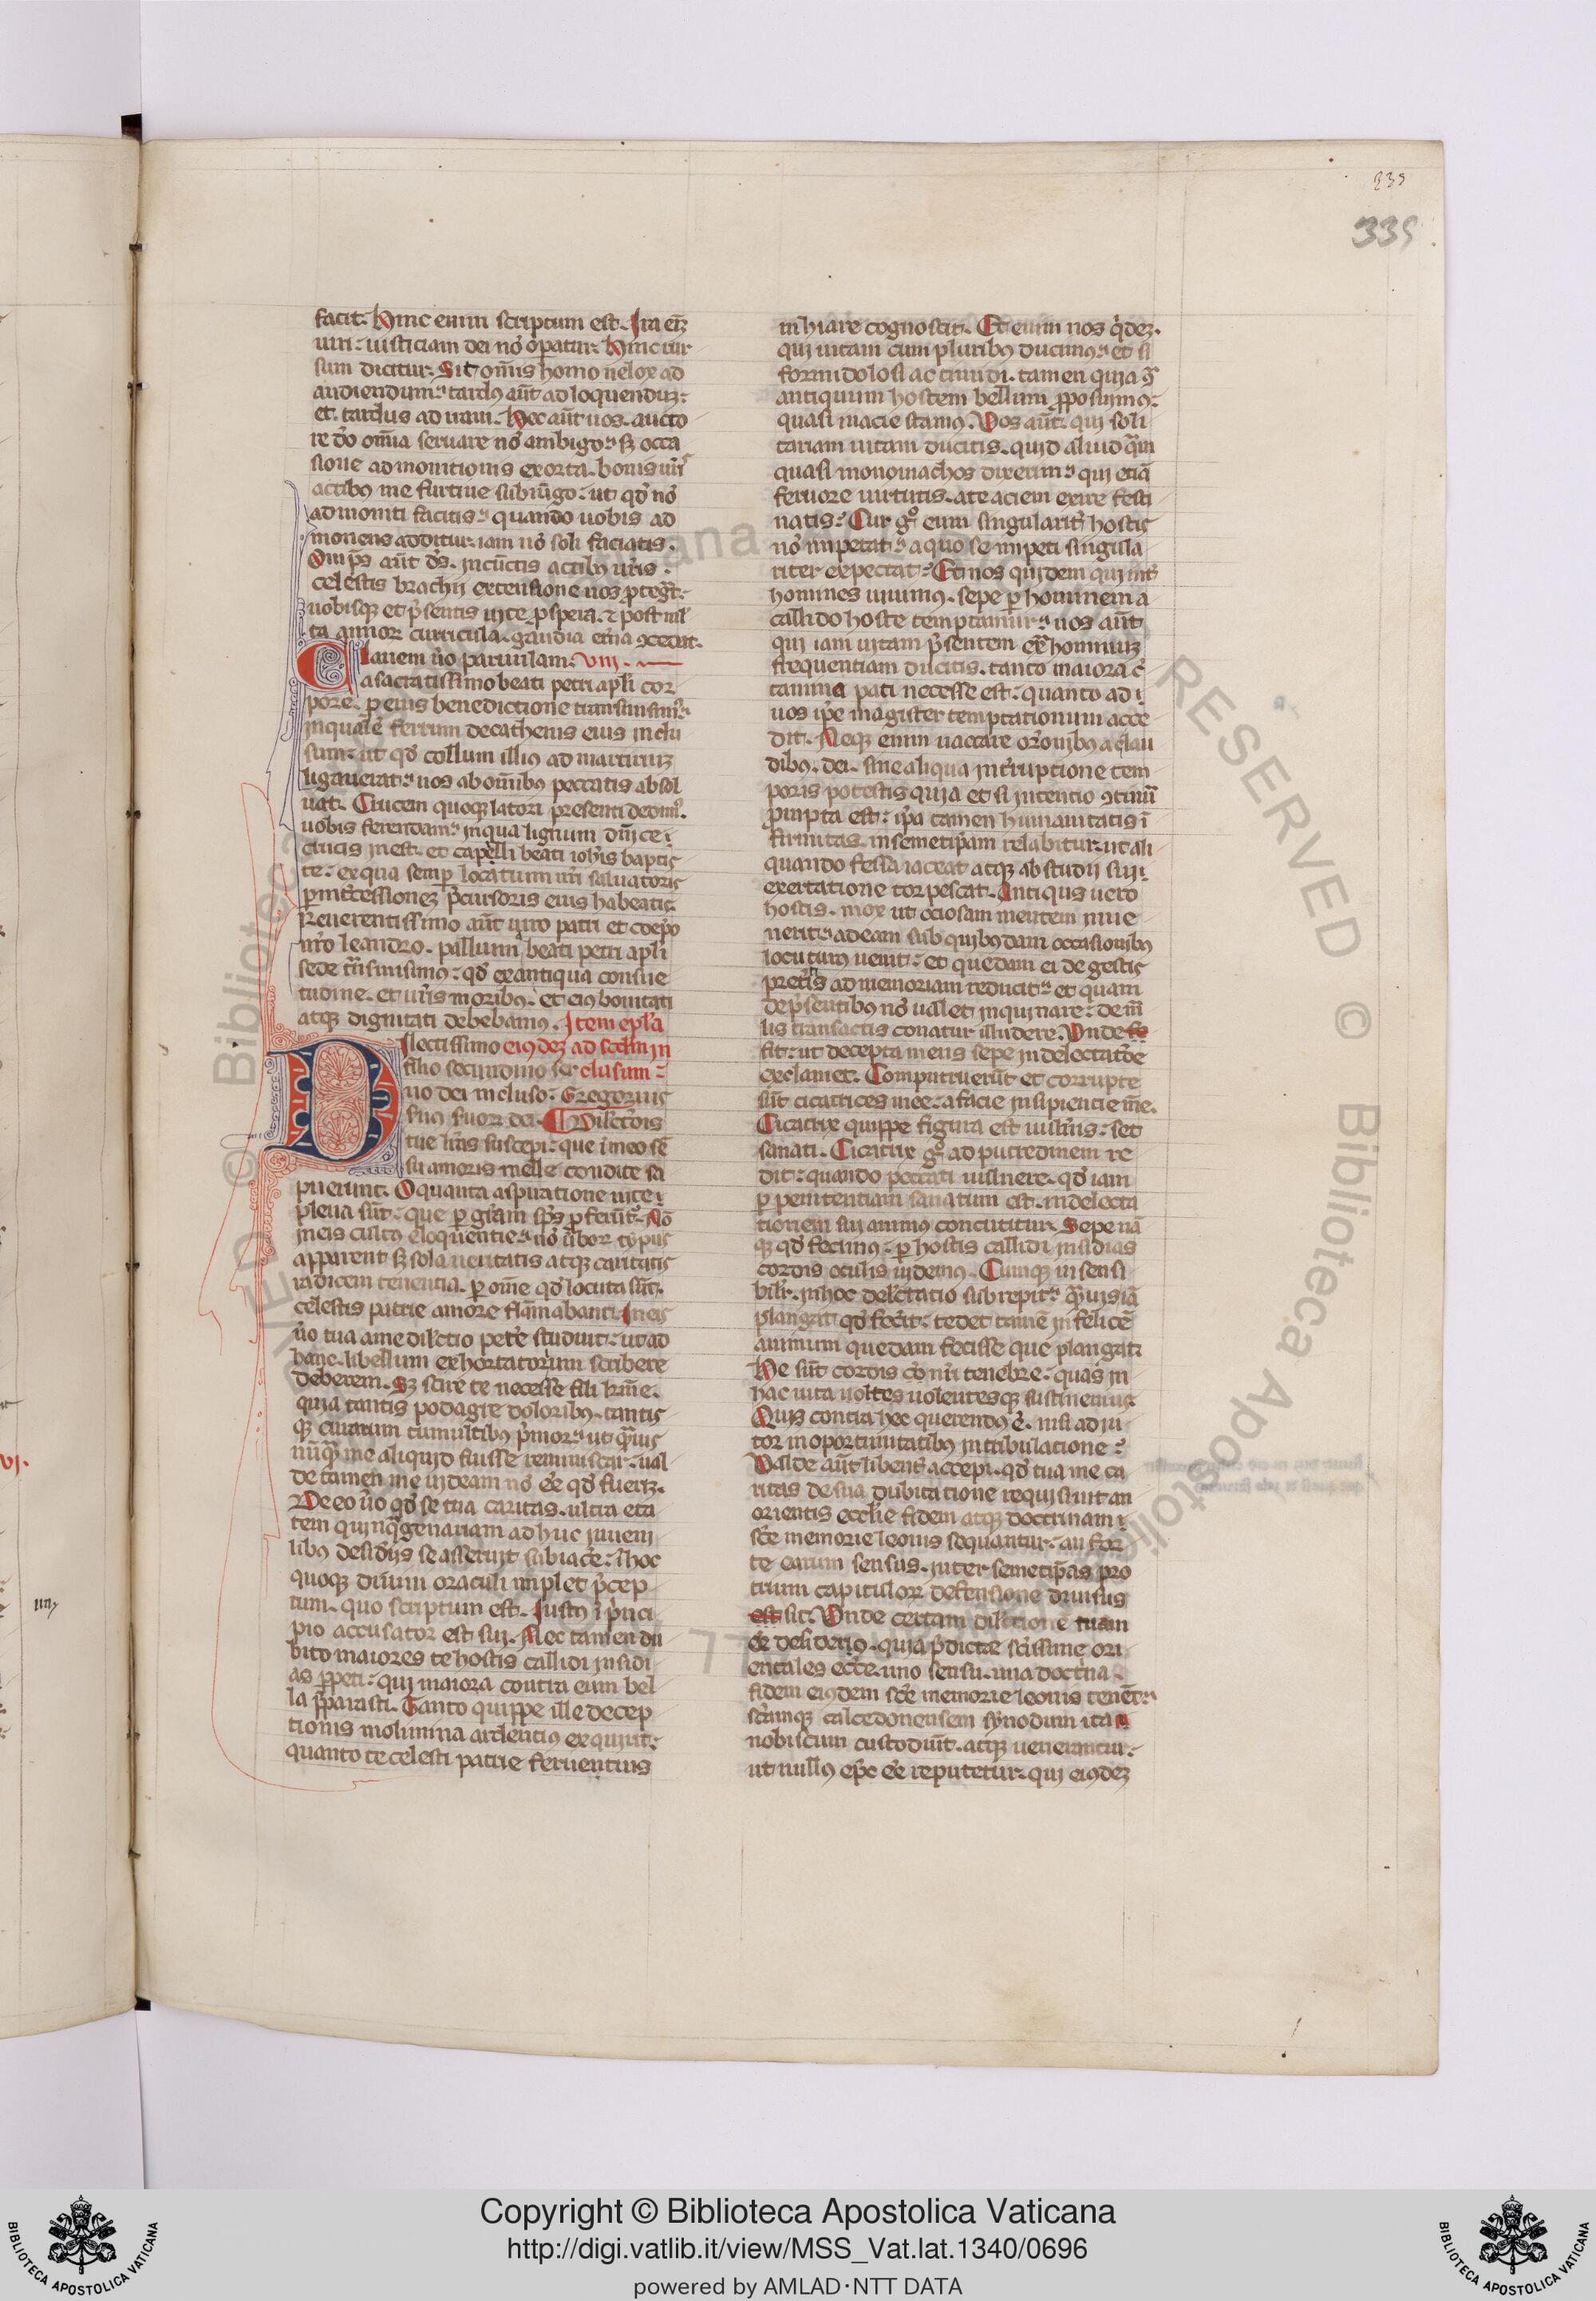 339
339
facit. Hinc enim scriptum est. Ira eiꝫ
uiri. iusticiam dei nō oꝑatur. Hinc rur
sum dicitur. Sit om̄is homo uelox ad
audiendum. tardꝰ aūt ad loquenduꝫ.
et. tardus ad iram. Hec aūt uos. aucto
re dō om̄ia seruare nō ambigo. sꝫ occa
sione admonitionis exorta. bonis ur̄is
actibꝰ me furtiue subiūgo. ut qd̄ nō
admoniti facitis. quando uobis ad
monens additur. iam nō soli faciatis.
Omīps aūt ds̄. in cūctis actibꝰ ur̄is.
celestis brachij extensione uos ꝓtegat.
uobisqꝫ et p̄sentis uite ꝓspera. ⁊ post ml̄
ta annoꝝ curricula. gaudia et̄na ꝯcedat.
Clauem u̇o paruulam. VIII.
a sacratissimo beati petri apl̄i cor
pore. ꝓ eius benedictione transmisimꝯ.
in qua īe ferrum de cathenis eius inclu
sum. ut qd̄ collum illiꝰ ad martiriuꝫ
ligauerat. uos ab om̄ibꝰ peccatis absol
uat. Crucem quoqꝫ latori presenti dedimꝰ.
uobis ferendam. in qua lignum dn̄ice
crucis inest. et capelli beati ioh̄is baptis
te. ex qua semꝑ solatium nr̄i saluatoris
ꝑ int̄cessioneꝫ p̄cursoris eius habeatis.
Reuerentissimo aūt uiro patri et coepō
nr̄o leandro. pallium a beati petri apl̄i
sede tn̄smisimus. qd̄ ex antiqua consue
tudine. et ur̄is moribꝰ. et eiꝰ bonitati
atqꝫ dignitati debebamꝰ. Item epl̄a
Dilectissimo eiꝰdeꝫ ad scd̄m in
filio secundino ser clusum.
uo dei incluso. Gregorius
seruꝰ seruoꝝ dei. Dilc̄tōis
tue lr̄as suscepi. que ī meo sē
su amoris melle condite sa
puerunt. O quanta aspiratione uite
plena sūt. que ꝑ gr̄am sp̄s ꝓferūt. Nō
in eis cultꝰ eloquentie. nō ūboꝝ typus
apparent sꝫ sola ueritatis atqꝫ caritatis
radicem tenentia. ꝑ om̄e qd̄ locuta sūt.
celestis patrie amore flāmabant. In eis
u̇o tua a me dilc̄tio pet̄e studuit. ut ad
hanc. libellum exhortatorium scribere
deberem. Sꝫ scire te necesse fili kīme.
quia tantis podagre doloribꝰ. tantis
qꝫ curarum tumultibꝰ p̄mor. ut q̄uis
nūq̄ me aliquid fuisse reminiscar. ual
de tamen me uideam nō ee qd̄ fueriꝫ.
De eo u̇o qd̄ se tua caritas. ultra eta
tem quinq̄genariam adhuc iuueni
libꝰ desid̄ijs se asseruit subiacē. ī hoc
quoqꝫ diuīni oraculi implet p̄cep
tum. quo scriptum est. Iustꝰ ī p̄nci
pio accusator est sui. Nec tamen du
bito maiores te hostis callidi insidi
as ꝑpeti. qui maiora contra eum bel
la p̄parasti. Tanto quippe ille decep
tionis molimina ardentiꝰ exquirit.
quanto te celesti patrie feruentius
inhiare cognoscit. Et enim nos q̇deꝫ.
qui uitam cum pluribꝰ ducimꝰ. et si
formidolosi ac timidi. tamen quia ꝯͣ
antiquum hostem bellum ꝓposuimꝰ.
quasi in acie stamꝰ. Vos aūt. qui soli
tariam uitam ducitis. quid aliud q̄m
quasi monomachos dixerim. qui etiā
feruore uirtutis. ante aciem exire festi
natis. Cur gͦ eum singularit̄ hostis
nō impetat. a quo se impeti singula
riter expectat. Et nos quidem qui int̄
homines uiuimꝰ. sepe ꝑ hominem a
callido hoste temptamur. uos aūt
qui iam uitam p̄sentem ext̄ hominuꝫ
frequentiam ducitis. tanto maiora c̄
tamina pati necesse est. quanto ad
uos ip̄e magister temptationum acce
dit. Neqꝫ enim uaccare or̄onibꝰ a clau
dibꝰ. dei. sine aliqua int̄ruptione tem
poris potestis quia et si intentio ꝯtinui
prompta est. ip̄a tamen humanitatis ī
firmitas. in semetip̄am relabitur. ut ali
quando fessa iaceat atqꝫ ab studij sui
exercitatione torpescat. Antiqus uero
hostis. mox ut ociosam mentem inue
nerit. ad eam sub quibꝰdam occasionibꝰ
locuturꝰ uenit. et quedam ei de gestis
pretitis ad memoriam reducit. et quam
de p̄sentibꝰ nō ualet inquinare. de ml̄
lis transactis conatur illudere. Vnde
fit. ut decepta mens sepe in delectatōe
exclamet. Computruerūt et corrupte
sūt cicatrices mee. a facie insipientie m̄e.
Cicatrix quippe figura est uuln̄is. set
sanati. Cicatrix gͦ ad putredinem re
dit. quando peccati uulnere. qd̄ iam
ꝑ penitentiam sanatum est. in delecta
tionem sui animꝰ concutitur. Sepe nā
qꝫ qd̄ fecimꝰ. ꝑ hostis callidi insidias
cordis oculis uidemꝰ. Cumqꝫ insensi
bilit̄. in hoc delc̄tatio subrepit. q̄uis iā
plangat qd̄ fecit. tedet tamē infelicē
animum quedam fecisse que plangat
He sūt cordis cōnri tenebre. quas in
hac uita noltes uolentesqꝫ sustinemus.
Quis contra hec querendꝰ ē. nisi adiu
tor in oportunitatibꝰ in tribulatione.
Valde aūt libent̄ accepi. qd̄ tua me ca
ritas de sua dubitatione requisiuit an
orientis eccl̄ie fidem atqꝫ doctrinam
sc̄e memorie leonis sequantur. an for
te earum sensus. inter semetip̄as pro
trium capituloꝝ defensione diuisus
est sit. Vnde certam dilc̄tionē tuam
eē desiderio. quia p̄dicte sc̄issime ori
entales ecc̄e. uno sensu. una doctr̄na
fidem eiꝰdem sc̄e memorie leonis tenēt.
sc̄amqꝫ calcedonensem synodum ita
nobiscum custodiūt. atqꝫ uenerantur.
ut nullꝰ ep̄c eē reputetur. qui eiꝰdeꝫ
VI.
IIII
Copyright © Biblioteca Apostolica Vaticana
http://digi.vatlib.it/view/MSS_Vat.lat.1340/0696
powered by AMLAD·NTT DATA
BIBLIOTECA APOSTOLICA VATICANA
BIBLIOTECA APOSTOLICA VATICANA